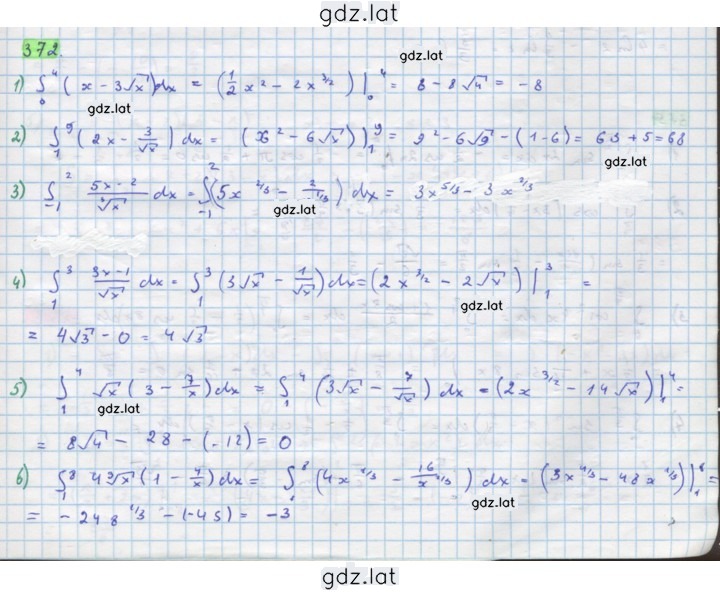 gdz.lat
372.
gdz.lat
1) ∫₀⁴ (x - 3√x)dx = (1/2 x² - 2x^3/2)|₀⁴ = 8 - 8√4 = -8
gdz.lat
2) ∫₁⁹ (2x - 3/√x) dx = (x² - 6√x)|₁⁹ = 9² - 6√9 - (1-6) = 63 + 5 = 68
gdz.lat
3) ∫₋₁² (5x-2)/∛x dx = ∫₋₁² (5x^2/3 - 2/x^1/3) dx = 3x^5/3 - 3x^2/3
gdz.lat
4) ∫₁³ (3x-1)/√x dx = ∫₁³ (3√x - 1/√x)dx = (2x^3/2 - 2√x)|₁³ =
gdz.lat
= 4√3 - 0 = 4√3
5) ∫₁⁴ √x (3 - 7/x)dx = ∫₁⁴ (3√x - 7/√x) dx = (2x^3/2 - 14√x)|₁⁴ =
gdz.lat
= 8√4 - 28 - (-12) = 0
6) ∫₁⁸ 4∛x (1 - 4/x)dx = ∫₁⁸ (4x^1/3 - 16/x^2/3) dx = (3x^4/3 - 48x^1/3)|₁⁸ =
gdz.lat
= -24 8^1/3 - (-45) = -3
gdz.lat